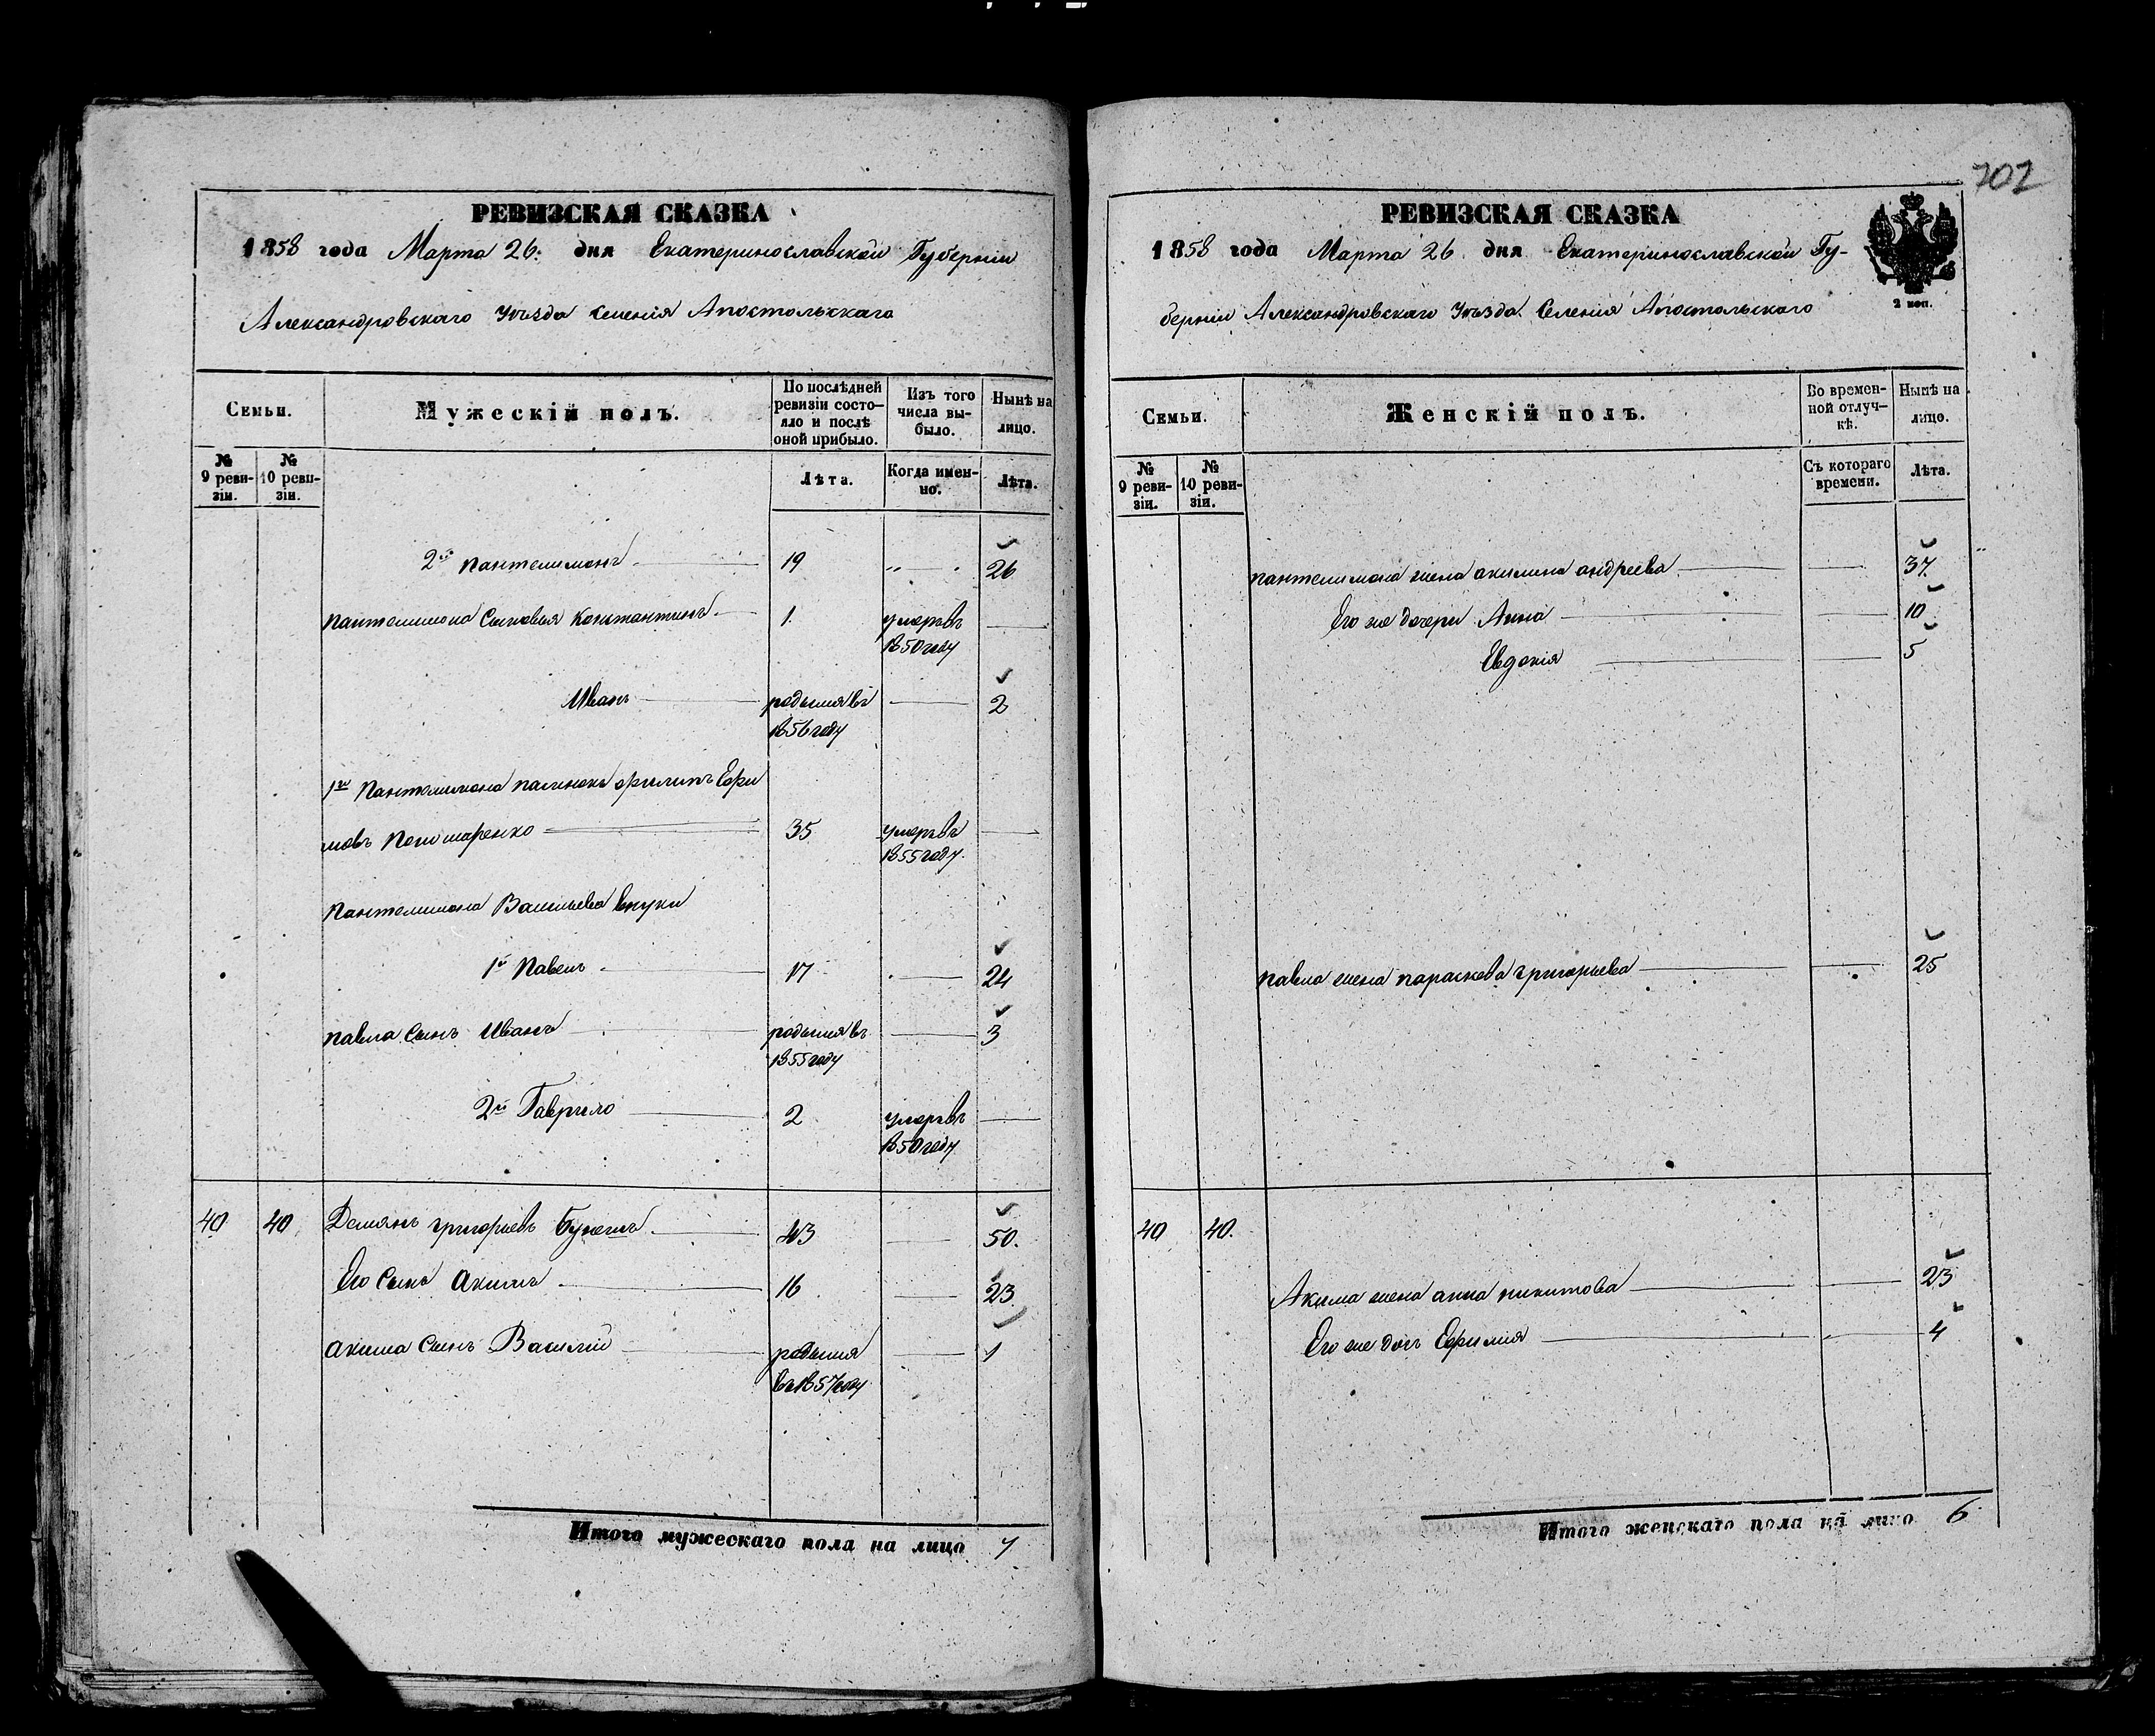 702
РЕВИЗСКАЯ СКАЗКА
1858 года Марта 26. дня Екатеринославской Губерніи
Александровскаго Уѣзда Селенія Апостольскаго
Семьи.
Мужескій полъ.
По послѣдней ревизіи состо-
яло и послѣ
оной прибыло.
Изъ того
числа вы-
было.
Нынѣ на
лицо.
№
9 реви-
зіи.
№
10 реви-
зіи.
Лѣта.
Когда имен-
но.
Лѣта.
2й Пантелимонъ 19 „ 26
Пантелимона Сыновья Константинъ 1. умеръ въ
1850 году
Иванъ родился въ 2
1856 году
1го Пантелимона пасинокъ Филипъ Ефи
мовъ Пономаренко 35 умеръ въ
1855 году.
Пантелимона Васильева внуки
1й Павелъ 17 24
Павла Сынъ Иванъ родился въ 3
1855 году
2й Гаврило 2 умеръ въ
1850 году
40 40 Демянъ Григорьевъ 43 50.
Его Сынъ Акимъ 16 23
Акима Сынъ Василій родился 1
въ 1857 году
Итого мужескаго пола на лицо 7
РЕВИЗСКАЯ СКАЗКА
1858 года Марта 26 дня Екатеринославской Гу-
берніи Александровскаго Уѣзда Селенія Апостольскаго
2 коп.
Семьи.
Женскій полъ.
Во времен-
ной отлуч-
кѣ.
Нынѣ на
лицо.
№
9 реви-
зіи.
№
10 реви-
зіи.
Съ котораго
времени.
Лѣта.
Пантелимона жена Акилина Андреева 37.
Его же дочери Анна 10
Евдокія 5
Павла жена Параскева Григорьева 25
40 40.
Акима жена Анна Никитова 23
Его же дочь Ефимія 4
Итого женскаго пола на лицо 6